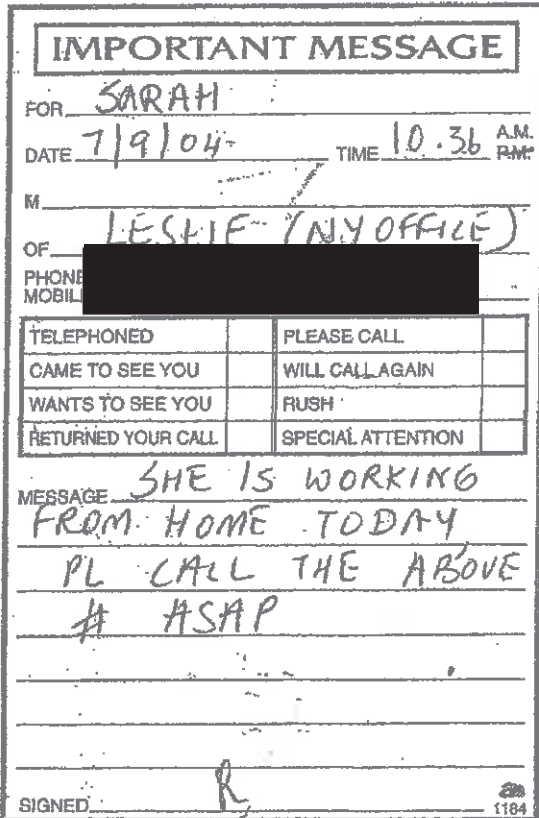 IMPORTANT MESSAGE
FOR SARAH
DATE 7/9/04 TIME 10.36 A.M. P.M.
M
OF LESLIE (NY OFFICE)
PHONE
MOBIL
TELEPHONED PLEASE CALL
CAME TO SEE YOU WILL CALL AGAIN
WANTS TO SEE YOU RUSH
RETURNED YOUR CALL SPECIAL ATTENTION
MESSAGE SHE IS WORKING
FROM HOME TODAY
PL CALL THE ABOVE
# ASAP
SIGNED R
1184